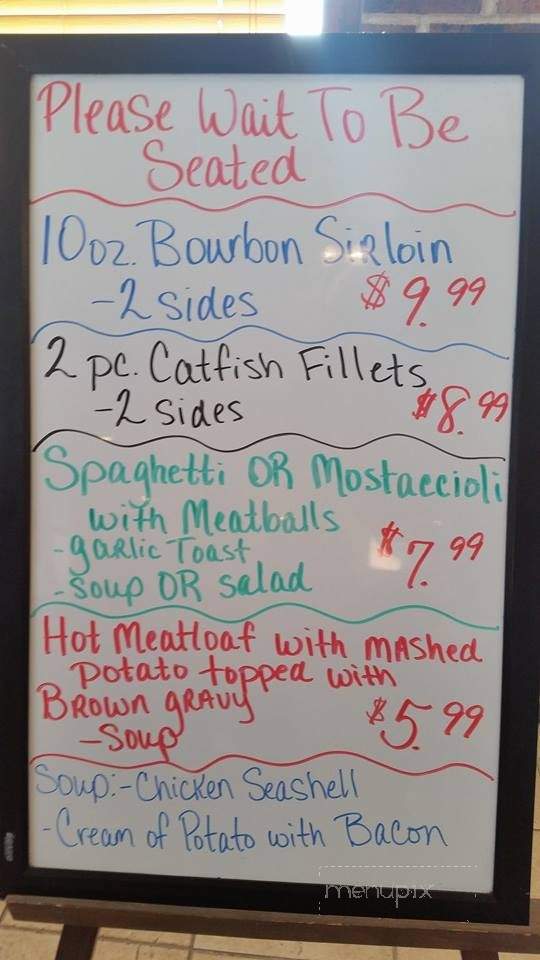 Please Wait To Be
Seated
10oz. Bourbon Sirloin
-2 sides $9.99
2 pc. Catfish Fillets
-2 sides $8.99
Spaghetti OR Mostaccioli
with Meatballs
-garlic Toast $7.99
-soup OR salad
Hot Meatloaf with MAshed
potato topped with
BROWN gRAVY
-Soup $5.99
Soup:-Chicken Seashell
-Cream of Potato with Bacon
menupix